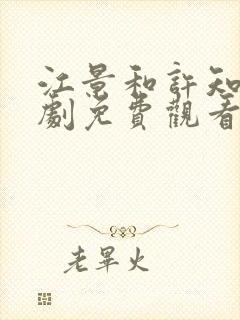 江景和許知
劇免費觀看
老畢火